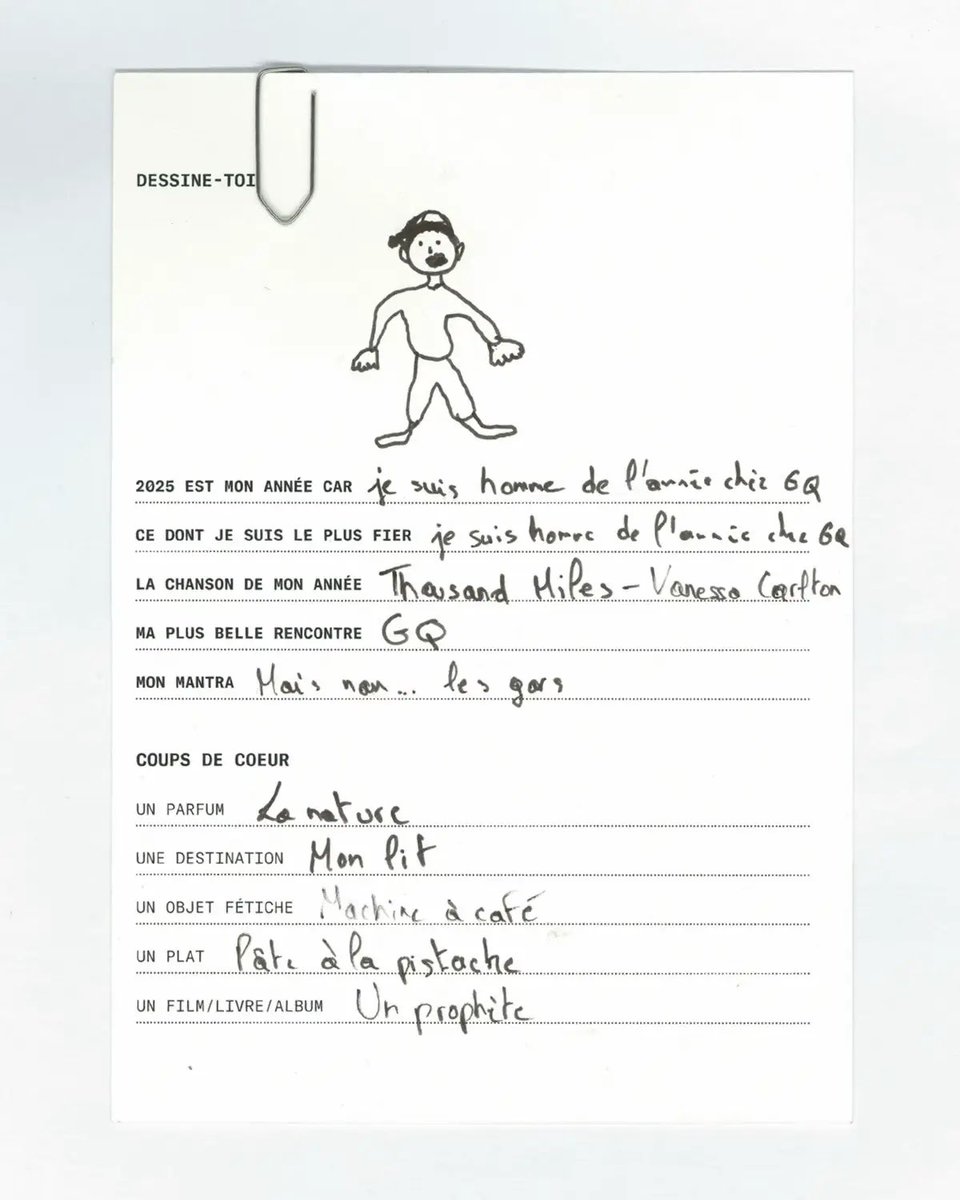 DESSINE-TOI
2025 EST MON ANNÉE CAR je suis homme de l'année chez GQ
CE DONT JE SUIS LE PLUS FIER je suis homme de l'année chez GQ
LA CHANSON DE MON ANNÉE Thousand Miles - Vanessa Carlton
MA PLUS BELLE RENCONTRE GQ
MON MANTRA Mais nan... les gars
COUPS DE COEUR
UN PARFUM La nature
UNE DESTINATION Mon lit
UN OBJET FÉTICHE Machine à café
UN PLAT Pâte à la pistache
UN FILM/LIVRE/ALBUM Un prophète